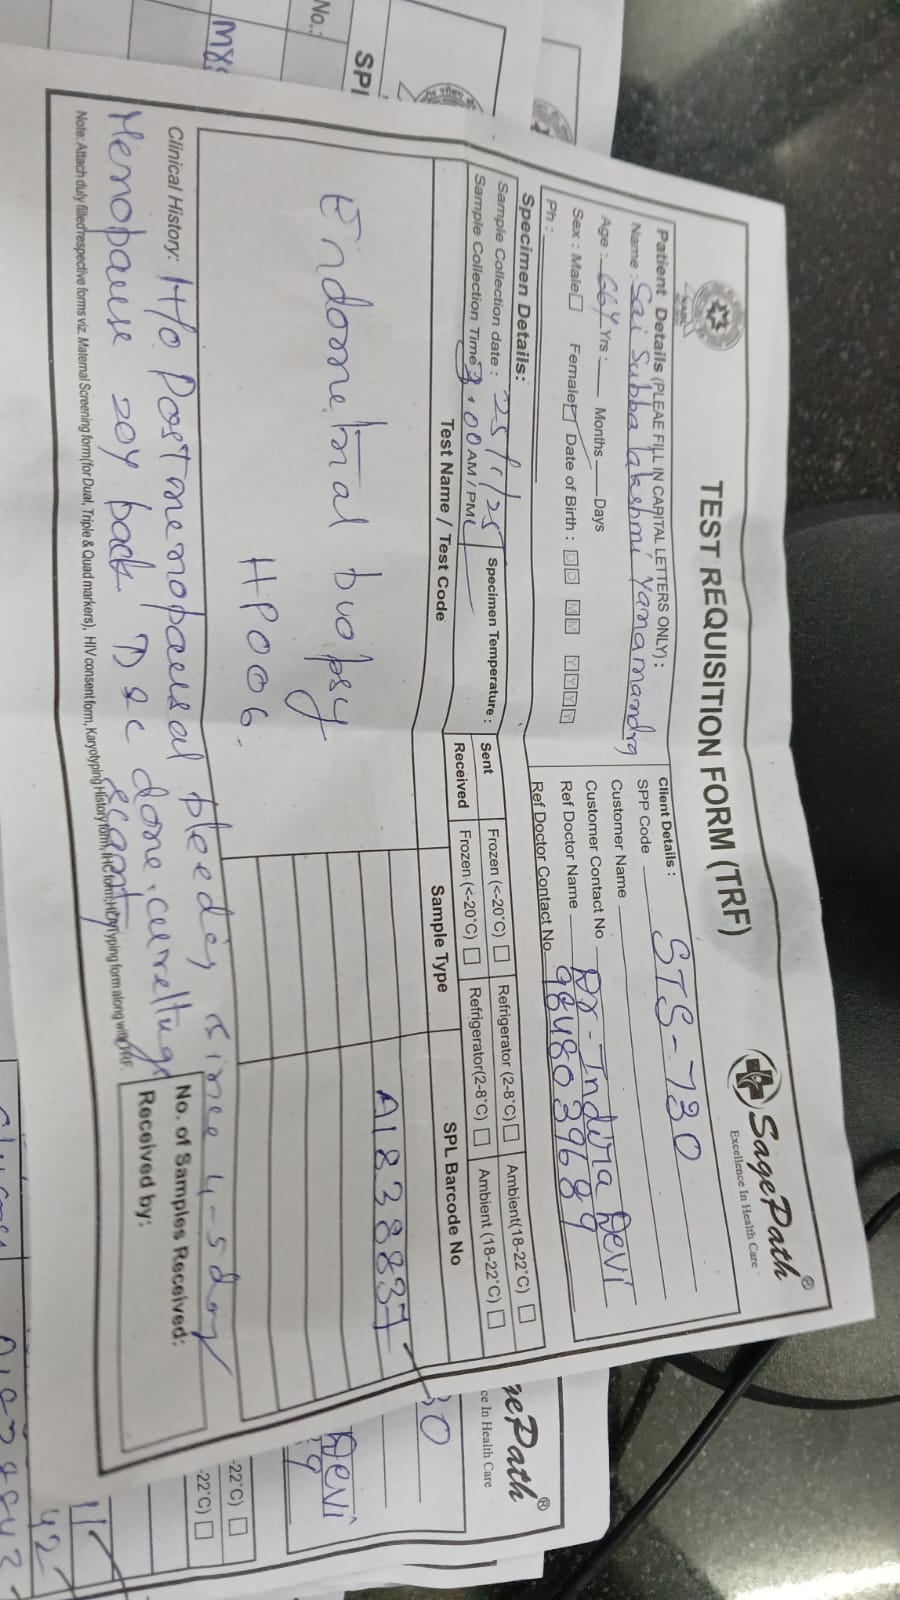 TEST REQUISITION FORM (TRF)
SagePath®
Excellence In Health Care
Patient Details (PLEAE FILL IN CAPITAL LETTERS ONLY) :
Name : Sai Subba lakshmi Yanamandra
Age : 66Y Yrs : Months Days
Sex : Male Female Date of Birth : D D M M Y Y Y Y
Ph :
Client Details :
SPP Code STS-730
Customer Name
Customer Contact No
Ref Doctor Name Dr - Indira Devi
Ref Doctor Contact No 9848039689
Specimen Details:
Sample Collection date : 25/1/25
Sample Collection Time : 3.00 AM / PM
Specimen Temperature :
Sent Frozen (<-20°C) Refrigerator (2-8°C) Ambient(18-22°C)
Received Frozen (<-20°C) Refrigerator(2-8°C) Ambient (18-22°C)
Test Name / Test Code Sample Type SPL Barcode No
A1838837
Endometrial buopsy
HP006.
Clinical History: H/o Postmenopausal bleeding since 4-5 days
Menopause 20y back D&C done. curettings
scanty
No. of Samples Received:
Received by:
Note: Attach duly filled respective forms viz. Maternal Screening form(for Dual, Triple & Quad markers), HIV consent form, Karyotyping History form, IHC form, HLA Typing form along with TRF.
No.:
SPI
30
gePath®
ce In Health Care
Devi
-22°C)
-22°C)